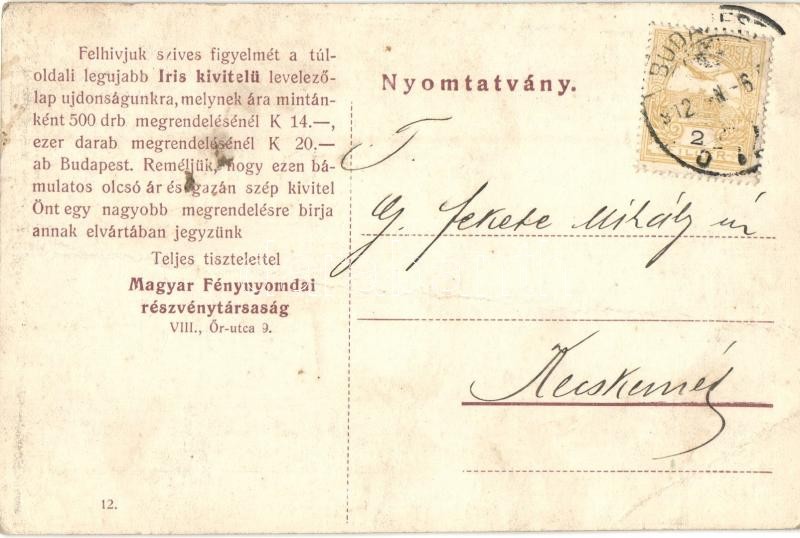 Felhivjuk szives figyelmét a túl-
oldali legujabb Iris kivitelü levelező-
lap ujdonságunkra, melynek ára mintán-
ként 500 drb megrendelésénél K 14.—,
ezer darab megrendelésénél K 20.—
ab Budapest. Reméljük, hogy ezen bá-
mulatos olcsó ár és igazán szép kivitel
Önt egy nagyobb megrendelésre birja
annak elvártában jegyzünk
Teljes tisztelettel
Magyar Fénynyomdai
részvénytársaság
VIII., Őr-utca 9.
12.
Nyomtatvány.
T.
Fekete Mihály úr
Kecskemét
BUDAPEST
912
6
2